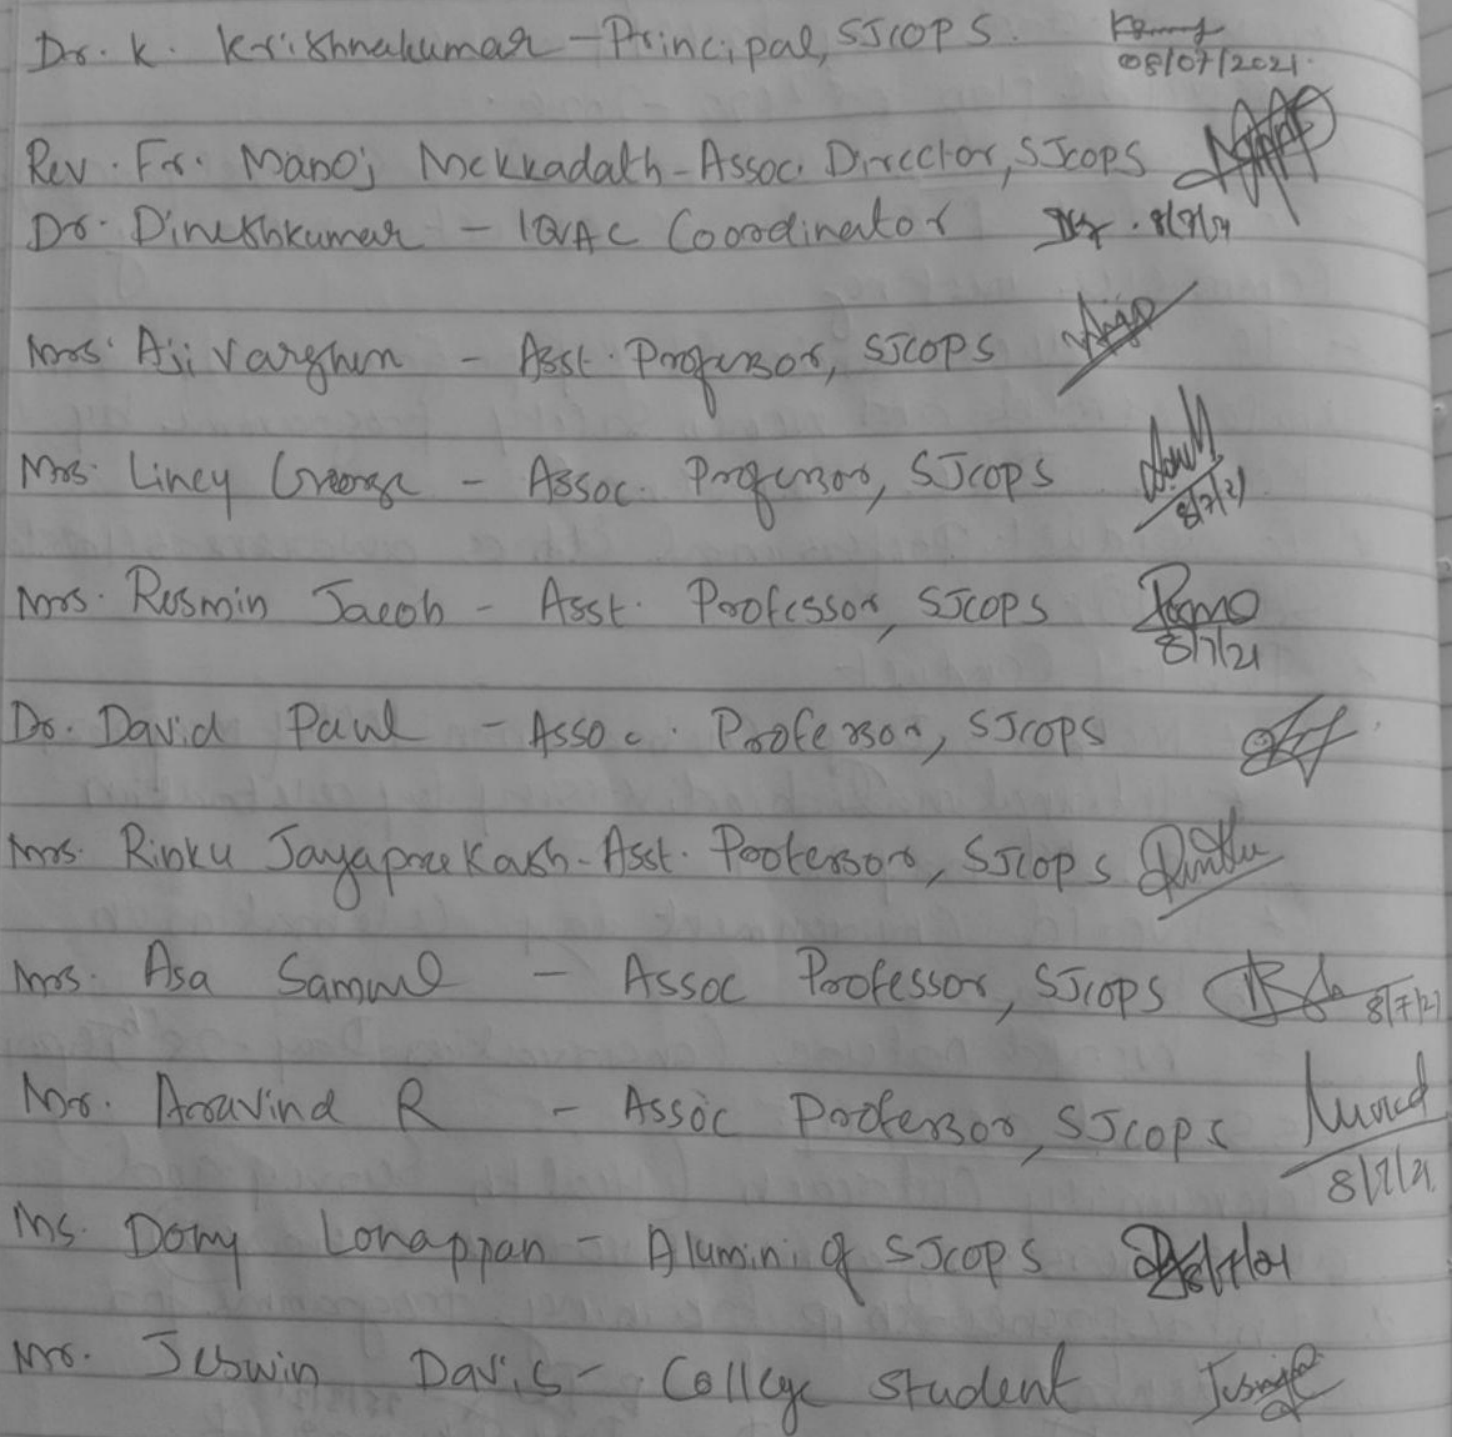 Dr. K. Krishnakumar - Principal, SJCOPS.
08/07/2021.
Rev. Fr. Manoj Mekkadath - Assoc. Director, SJCOPS
Dr. Dineshkumar - IQAC Coordinator 8/7/21
Mrs. Aji Varghese - Asst. Professor, SJCOPS
Mrs. Lincy George - Assoc. Professor, SJCOPS
8/7/21
Mrs. Rosmin Jacob - Asst. Professor, SJCOPS
8/7/21
Dr. David Paul - Assoc. Professor, SJCOPS
Mrs. Rinku Jayaprakash - Asst. Professor, SJCOPS
Mrs. Asa Samuel - Assoc Professor, SJCOPS 8/7/21
Mr. Aravind R - Assoc Professor, SJCOPS
8/7/21.
Ms. Dony Lonappan - Alumini of SJCOPS 8/7/21
Mr. Jeswin Davis - College Student